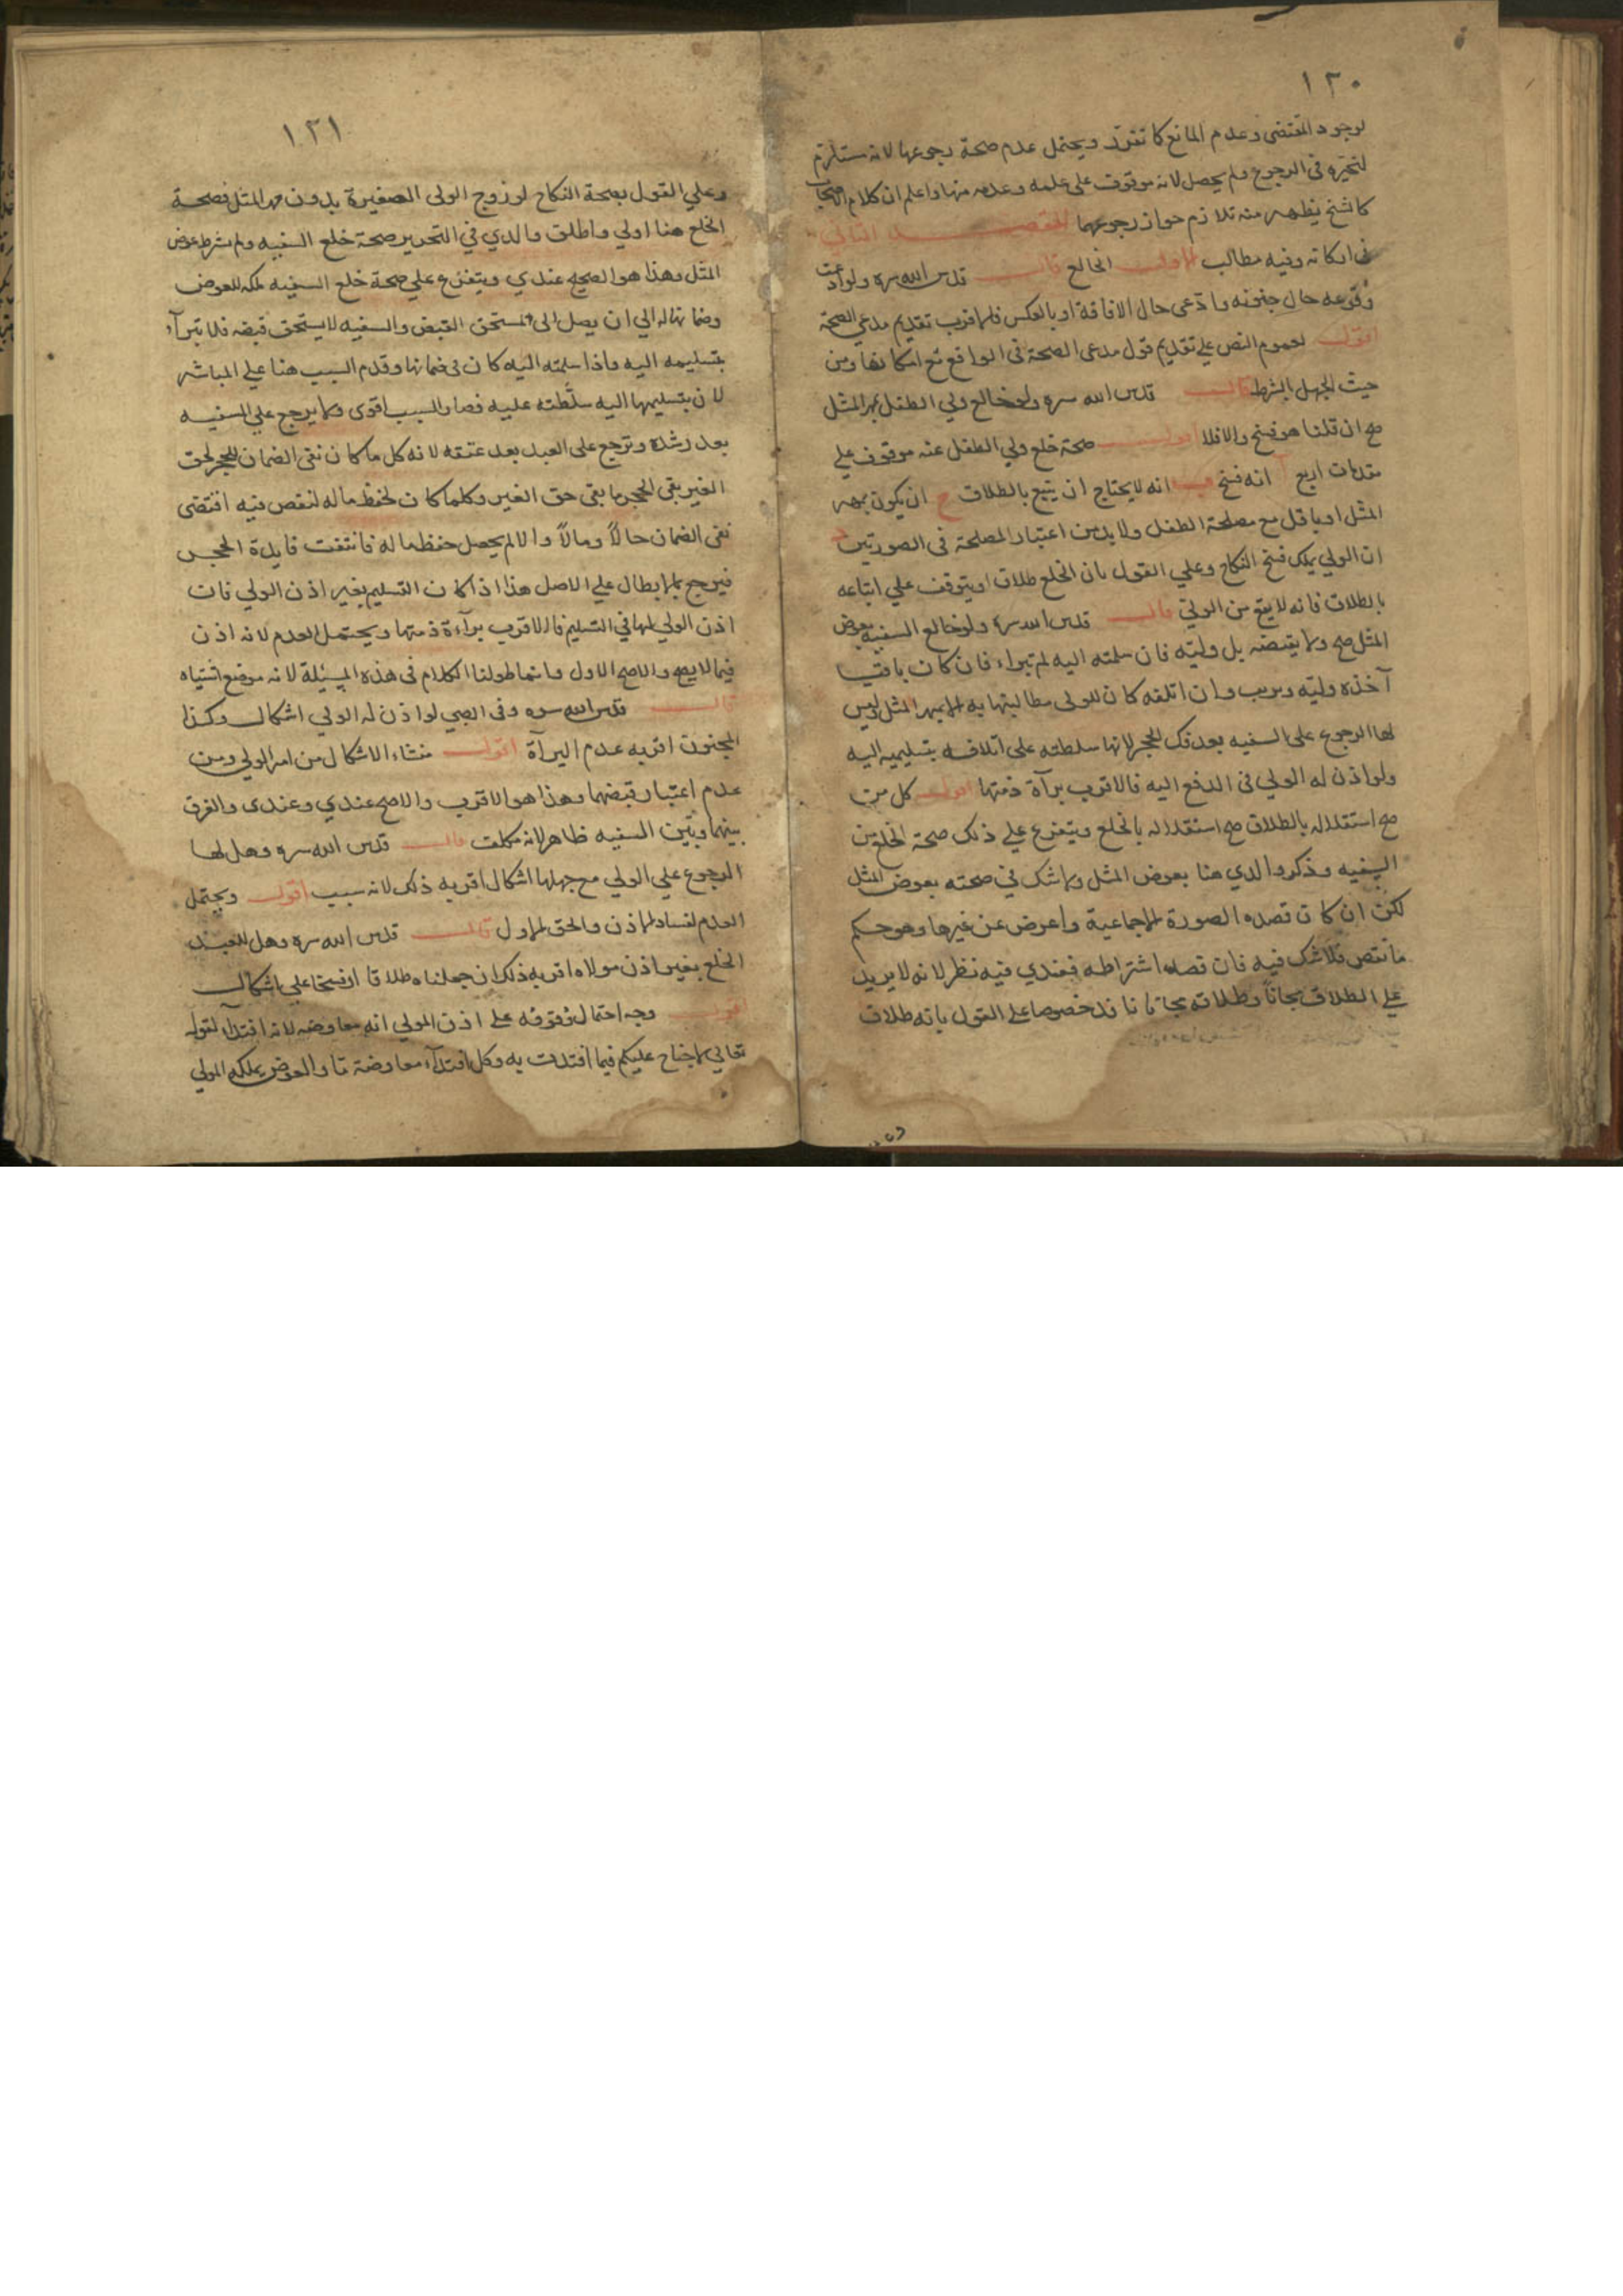 ١٣٠
لوجود المقتضى وعدم المانع كما تقرر ويحتمل عدم صحة رجوعها لانه يستلزم
تخيره فى الرجوع ولم يحصل لانه موقوف على علمه وعدمه منها واعلم ان كلام الاصحاب
كالشيخ يظهر منه تلازم جواز رجوعهما المقصد الثانى
فى اركانه وفيه مطالب الاول الخالع قال قدس الله سره ولو ادعت
وقوعه حال جنونه وادعى حال الافاقة او بالعكس فالاقرب تقديم مدعى الصحة
اقول لعموم النص على تقديم قول مدعى الصحة فى الواقع مع امكانها ومن
حيث الجهل بالشرط قال قدس الله سره ولو خالع ولى الطفل بمهر المثل
صح ان قلنا هو فسخ والا فلا اقول صحة خلع ولى الطفل عنه موقوف على
مقدمات اربع آ انه فسخ ب انه لا يحتاج ان يتبع بالطلاق ج ان يكون بمهر
المثل او باقل مع مصلحة الطفل ولا بد من اعتبار المصلحة فى الصورتين د
ان الولى يملك فسخ النكاح وعلى القول بان الخلع طلاق او يتوقف على اتباعه
بالطلاق فانه لا يقع من الولى قال قدس الله سره ولو خالع السفيه بعوض
المثل صح ولا يقبضه بل وليه فان سلمته اليه لم تبراء فان كان باقيا
آخذه وليه وبريت وان اتلفه كان للولى مطالبتها به لا بمهر المثل وليس
لها الرجوع على السفيه بعد فك الحجر لانها سلطته على اتلافه بتسليمه اليه
ولو اذن له الولى فى الدفع اليه فالاقرب برآة ذمتها اقول كل من
صح استقلاله بالطلاق صح استقلاله بالخلع ويتفرع على ذلك صحة الخلع من
السفيه وذكر والدي هنا بعوض المثل ولا شك في صحته بعوض المثل
لكن ان كان قصده الصورة الاجماعية واعرض عن غيرها وهو حكم
ما نقص فلا شك فيه فان قصد اشتراطه فعندي فيه نظر لانه لا يزيد
على الطلاق مجانا وطلاقه مجانا نافذ خصوصا على القول بانه طلاق
١٢١
وعلي القول بصحة النكاح لو زوج الولى الصغيرة بدون مهر المثل فصحة
الخلع هنا اولي واطلق والدي في التحرير صحة خلع السفيه ولم يشرط عوض
المثل وهذا هو الصحيح عندي ويتفرع علي صحة خلع السفيه ملكه للعوض
وضمانها له الي ان يصل الى مستحق القبض والسفيه لا يستحق قبضه فلا تبرآء
بتسليمه اليه واذا سلمته اليه كان فى ضمانها وقدم السبب هنا على المباشر
لان بتسليمها اليه سلطته عليه فصار السبب اقوى ولا يرجع علي السفيه
بعد رشده وترجع على العبد بعد عتقه لانه كل ما كان نفى الضمان للحجر لحق
الغير بقى الحجر ما بقى حق الغير وكلما كان لحفظ ماله لنقص فيه اقتضى
نفى الضمان حالاً ومالاً والا لم يحصل حفظ ماله فانتفت فايدة الحجر
فيرجع بالابطال علي الاصل هذا اذا كان التسليم بغير اذن الولي فان
اذن الولي لها في التسليم فالاقرب برآءة ذمتها ويحتمل العدم لانه اذن
فيما لا يصح والاصح الاول وانما طولنا الكلام فى هذه المسئلة لانه موضع اشتباه
قال قدس الله سره وفى الصبي لو اذن له الولي اشكال وكذا
المجنون اقربه عدم البرآة اقول منشاء الاشكال من امر الولي ومن
عدم اعتبار قبضهما وهذا هو الاقرب والاصح عندي وعندى والفرق
بينهما وبين السفيه ظاهر لانه مكلف قال قدس الله سره وهل لها
الرجوع علي الولي مع جهلها اشكال اقربه ذلك لانه سبب اقول ويحتمل
العدم لفساد الاذن والحق الاول قال قدس الله سره وهل للعبد
الخلع بغير اذن مولاه اقربه ذلك ان جعلناه طلاقا او فسخا علي اشكال
اقول وجه احتمال توقفه على اذن المولي انه معاوضه لانه افتدآء لقوله
تعالي لا جناح عليكم فيما افتدت به وكل افتدآء معاوضة تا والعوض يملكه المولي